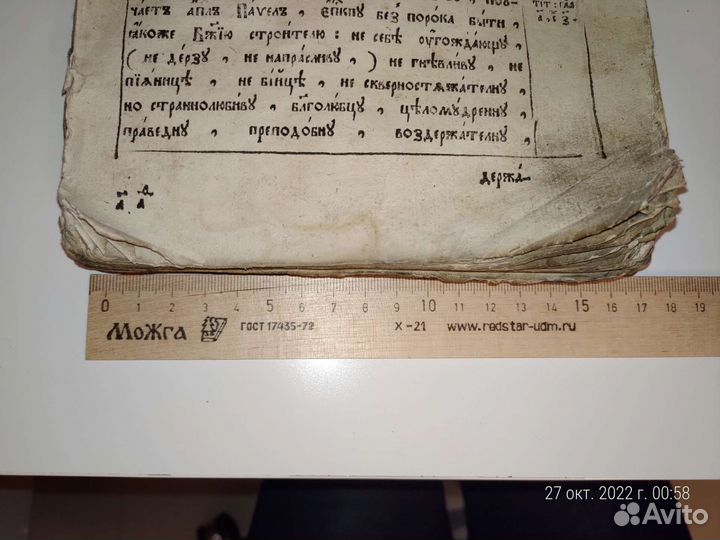 чаетъ а҆пⷭ҇лъ Па́ѵелъ , є҆пⷭ҇кпꙋ без̾ поро́ка бы́ти ,
ꙗ҆́коже Бж҃їю строи́телю : не себѣ̀ ᲂу҆гожда́ющꙋ ,
( не де́рзꙋ , не напра́сливꙋ , ) не гнѣ́вливꙋ , не
пїѧ́ницѣ , не бі́йцѣ , не скверностѧжа́телнꙋ ,
но страннолюби́вꙋ , бл҃голю́бцꙋ , цѣломꙋ́дреннꙋ ,
пра́веднꙋ , преподо́бнꙋ , воздержа́телнꙋ ,
держа́-
тіт : гла
а҃ , ѕ҃ , з҃ .
0 1 2 3 4 5 6 7 8 9 10 11 12 13 14 15 16 17 18 19
МоЖга ГОСТ 17435-72 X-21 www.redstar-udm.ru
27 окт. 2022 г. 00:58
Avito